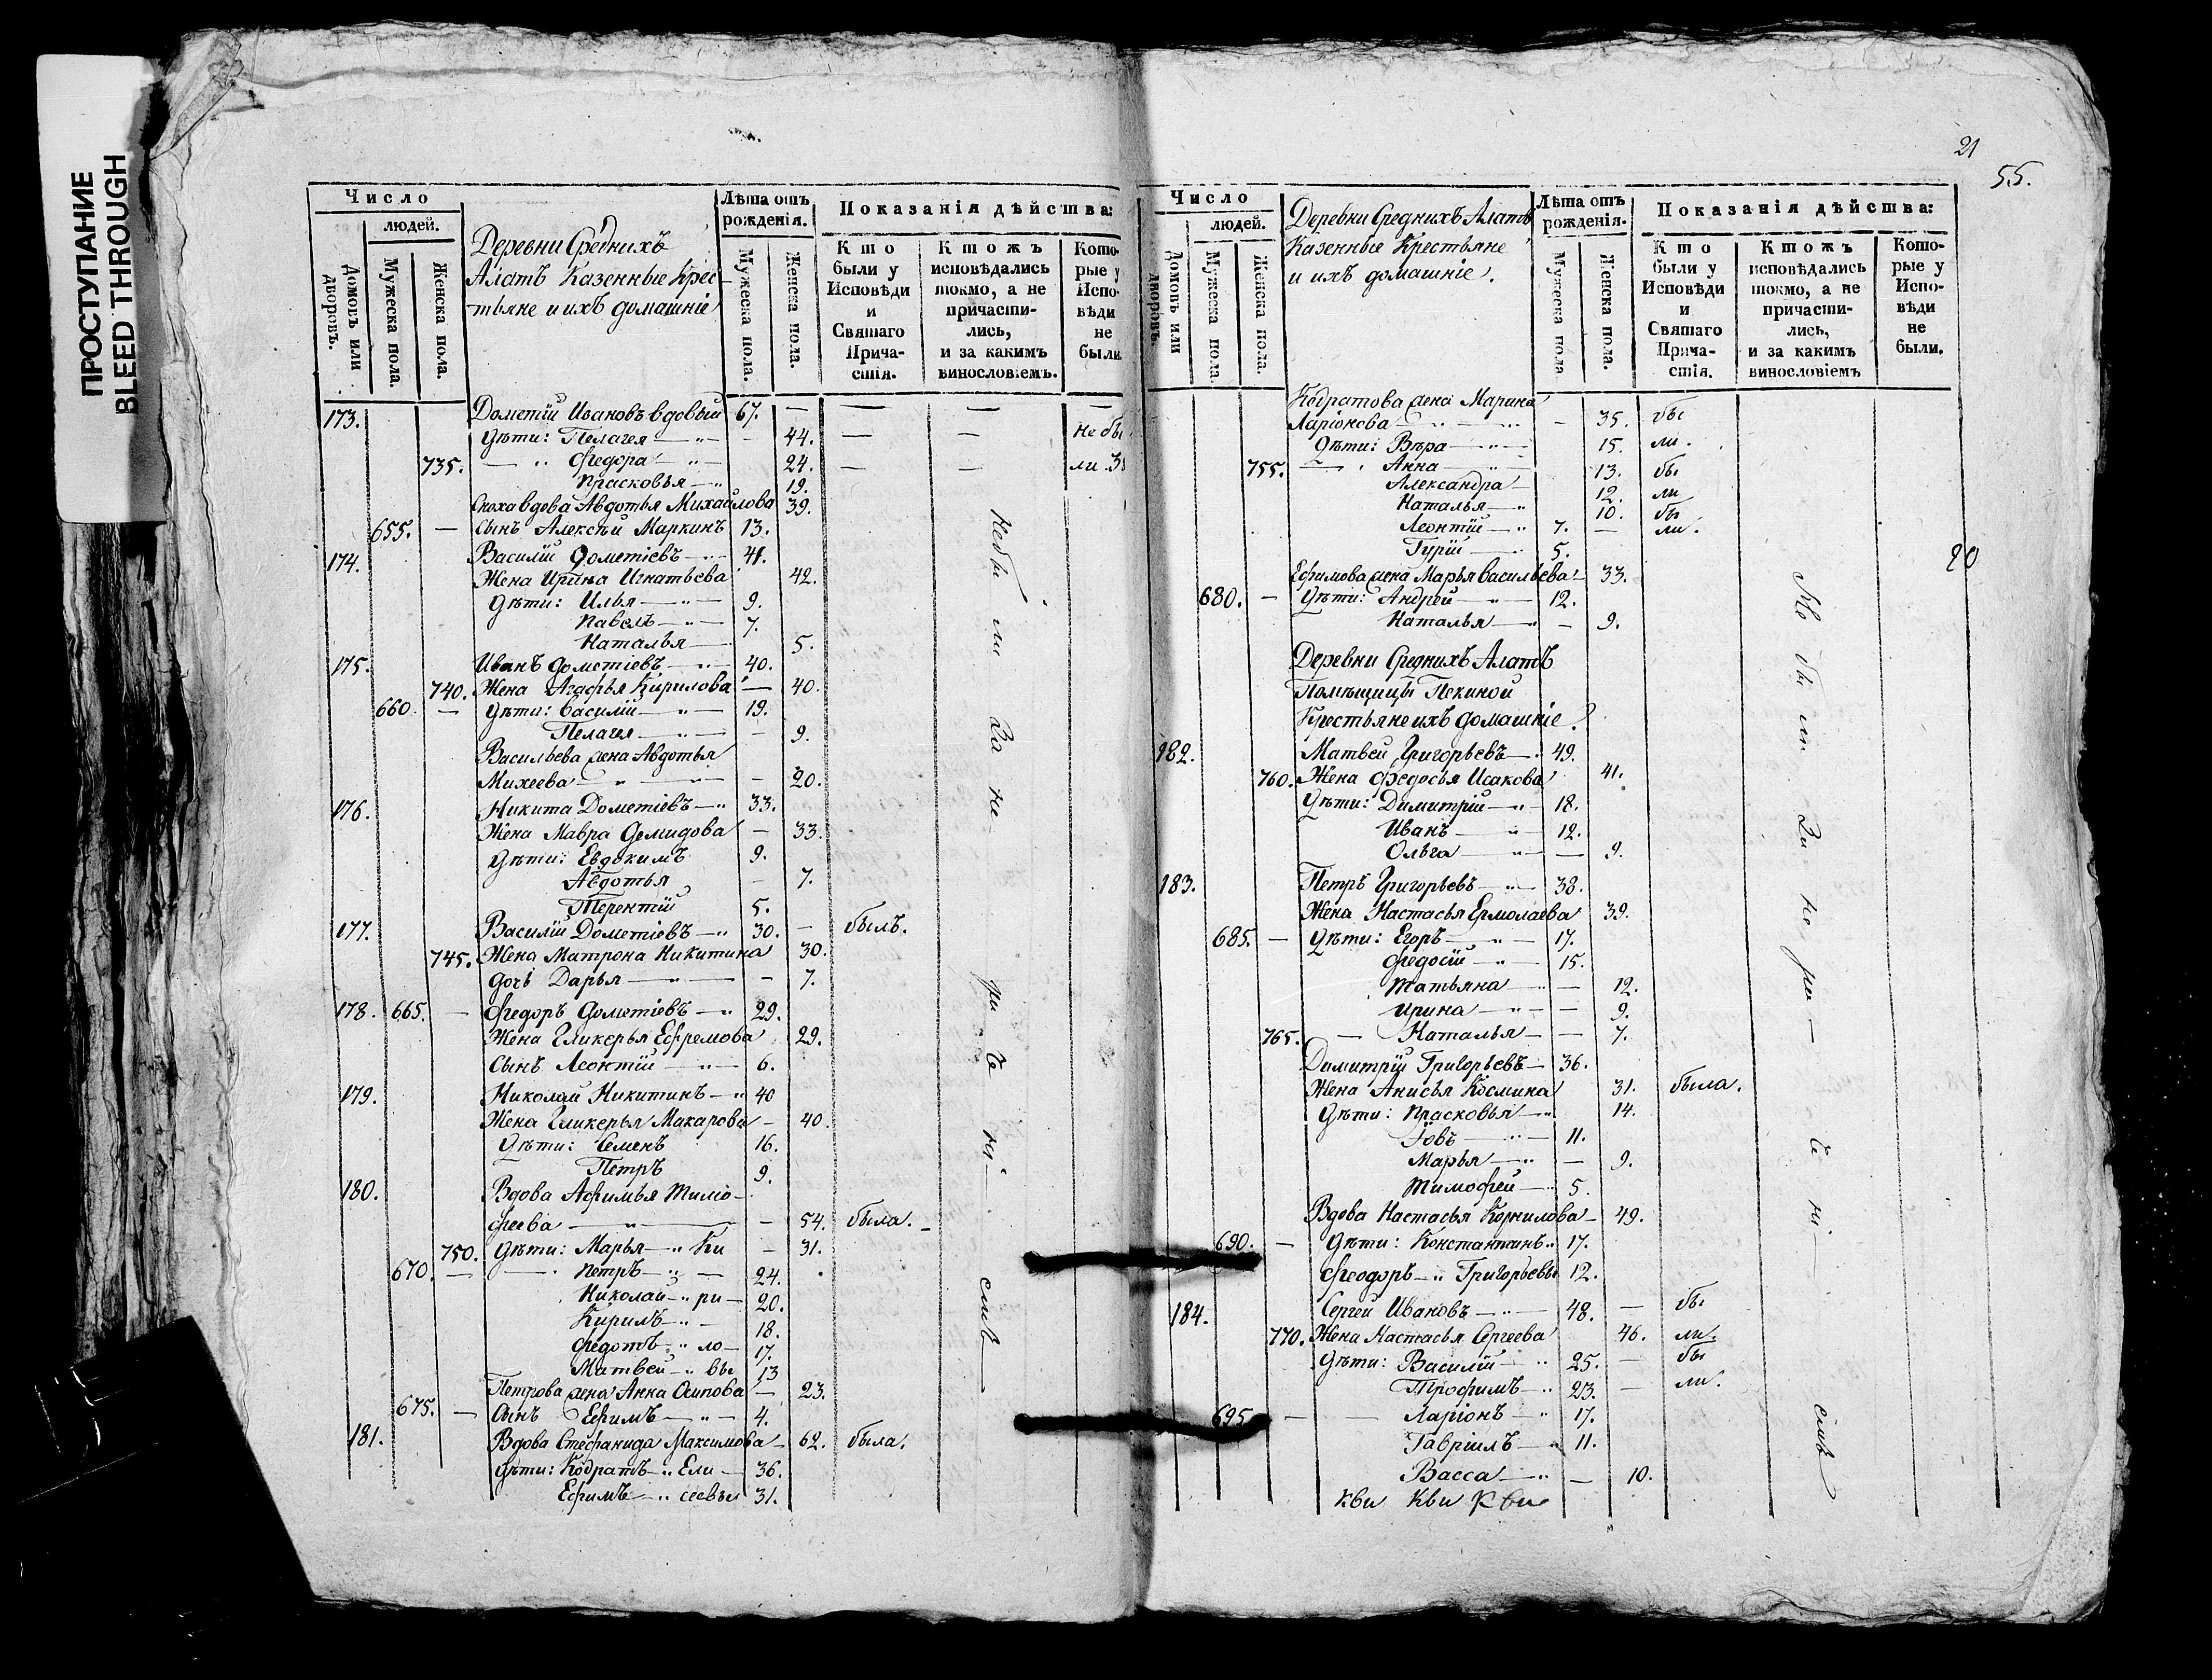 ПРОСТУПАНИЕ
BLEED THROUGH
Число
людей.
Домовъ или дворовъ.
Мужеска пола.
Женска пола.
Деревни Среднихъ
Алатъ Казенные Крес-
тьяне и ихъ домашніе
Лѣта отъ рожденія.
Мужеска пола.
Женска пола.
Показанія дѣйства:
Кто были у Исповѣди и Святаго Прича- стія.
Ктожъ исповѣдались токмо, а не причасти- лись, и за какимъ винословіемъ.
Кото- рые у Испо- вѣди не были.
173. Дометій Ивановъ вдовый 67. — — — —
дѣти: Пелагея — 44. — — не бы
735. — Федора — 24. — — ли. 3
Прасковья — 19.
Сноха вдова Авдотья Михайлова 39.
655. — Сынъ Алексѣй Маркинъ 13.
174. Василій Дометіевъ — 41.
Жена Ирина Игнатьева 42.
дѣти: Илья — 9.
Павелъ — 7.
Наталья — 5.
175. Иванъ Дометіевъ — 40.
740. Жена Агафья Кирилова — 40.
660. — дѣти: Василій — 19.
Пелагея — 9.
Васильева жена Авдотья
Михеева — 20.
176. Никита Дометіевъ — 33.
Жена Мавра Демидова — 33.
дѣти: Евдокимъ 9.
Авдотья — 7.
Терентій 5.
177. Василій Дометіевъ — 30. — былъ.
745. Жена Матрона Никитина 30.
дочь Дарья — 7.
178. 665. — Федоръ Дометіевъ — 29.
Жена Гликерья Ефремова 29.
Сынъ Леонтій — 6.
179. Николай Никитинъ — 40
Жена Гликерья Макарова — 40.
дѣти: Семенъ 16.
Петръ 9.
180. Вдова Афимья Тимо-
феева — 54. была.
750. дѣти: Марья — Ки — 31.
670. — Петръ — 24.
Николай — ри — 20.
Кирилъ — 18.
Федотъ — ло — 17.
Матвей — вы 13
Петрова жена Анна Осипова — 23.
675. — Сынъ Ефимъ — 4.
181. Вдова Стефанида Максимова — 62. была.
дѣти: Кодратъ — Ели — 36.
Ефимъ — сеевы 31.
Не бы ли за не ра че ні емъ
21
55.
Число
людей.
Домовъ или дворовъ.
Мужеска пола.
Женска пола.
Деревни Среднихъ Алатъ
Казенные Крестьяне
и ихъ домашніе.
Лѣта отъ рожденія.
Мужеска пола
Женска пола.
Показанія дѣйства:
Кто были у Исповѣди и Святаго Прича- стія.
Ктожъ исповѣдались токмо, а не причасти- лись, и за какимъ винословіемъ
Кото- рые у Испо- вѣди не были.
Кодратова жена Марина
Ларіонова — 35. бы
дѣти: Вѣра — 15. ли.
755. — Анна — 13. бы
Александра — 12. ли
Наталья — 10. бы
Леонтій — 7. — ли.
Гурій — 5.
20
Ефимова жена Марья Васильева — 33.
680. — дѣти: Андрей — 12.
Наталья — 9.
Деревни Среднихъ Алатъ
Помѣщицы Пекиной
Крестьяне ихъ домашніе
182. Матвей Григорьевъ — 49.
760. Жена Федосья Исакова 41.
дѣти: Димитрій — 18.
Иванъ — 12.
Ольга — 9.
183. Петръ Григорьевъ — 38.
Жена Настасья Ермолаева 39.
685. — дѣти: Егоръ — 17.
Федосій — 15.
Татьяна — 12.
Ирина — 9.
765. — Наталья — 7.
Димитрій Григорьевъ — 36.
Жена Анисья Космина 31. была.
дѣти: Прасковья — 14.
Іовъ — 11.
Марья — 9.
Тимофей — 5.
Вдова Настасья Корнилова — 49.
690. — дѣти: Константинъ 17.
Феодоръ — Григорьевы 12.
184. Сергей Ивановъ — 48. — бы
770. Жена Настасья Сергеева 46. ли.
дѣти: Василій — 25. — бы
Трофимъ — 23. — ли.
695. — Ларіонъ — 17.
Гавріилъ — 11.
Васса — 10.
Не бы ли за не ра- че ні емъ